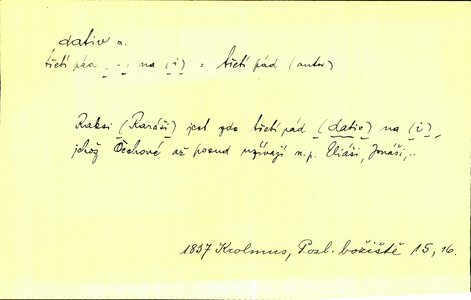 dativ m.
třetí pád . . na (i) : třetí pád (autor)
Raksi (Raráši) jest zde třetí pád (dativ) na (i),
jehož Čechové až posud užívají n.p. Eliáši, Jonáši,..
1837 Krolmus, Posl. božiště 15, 16.